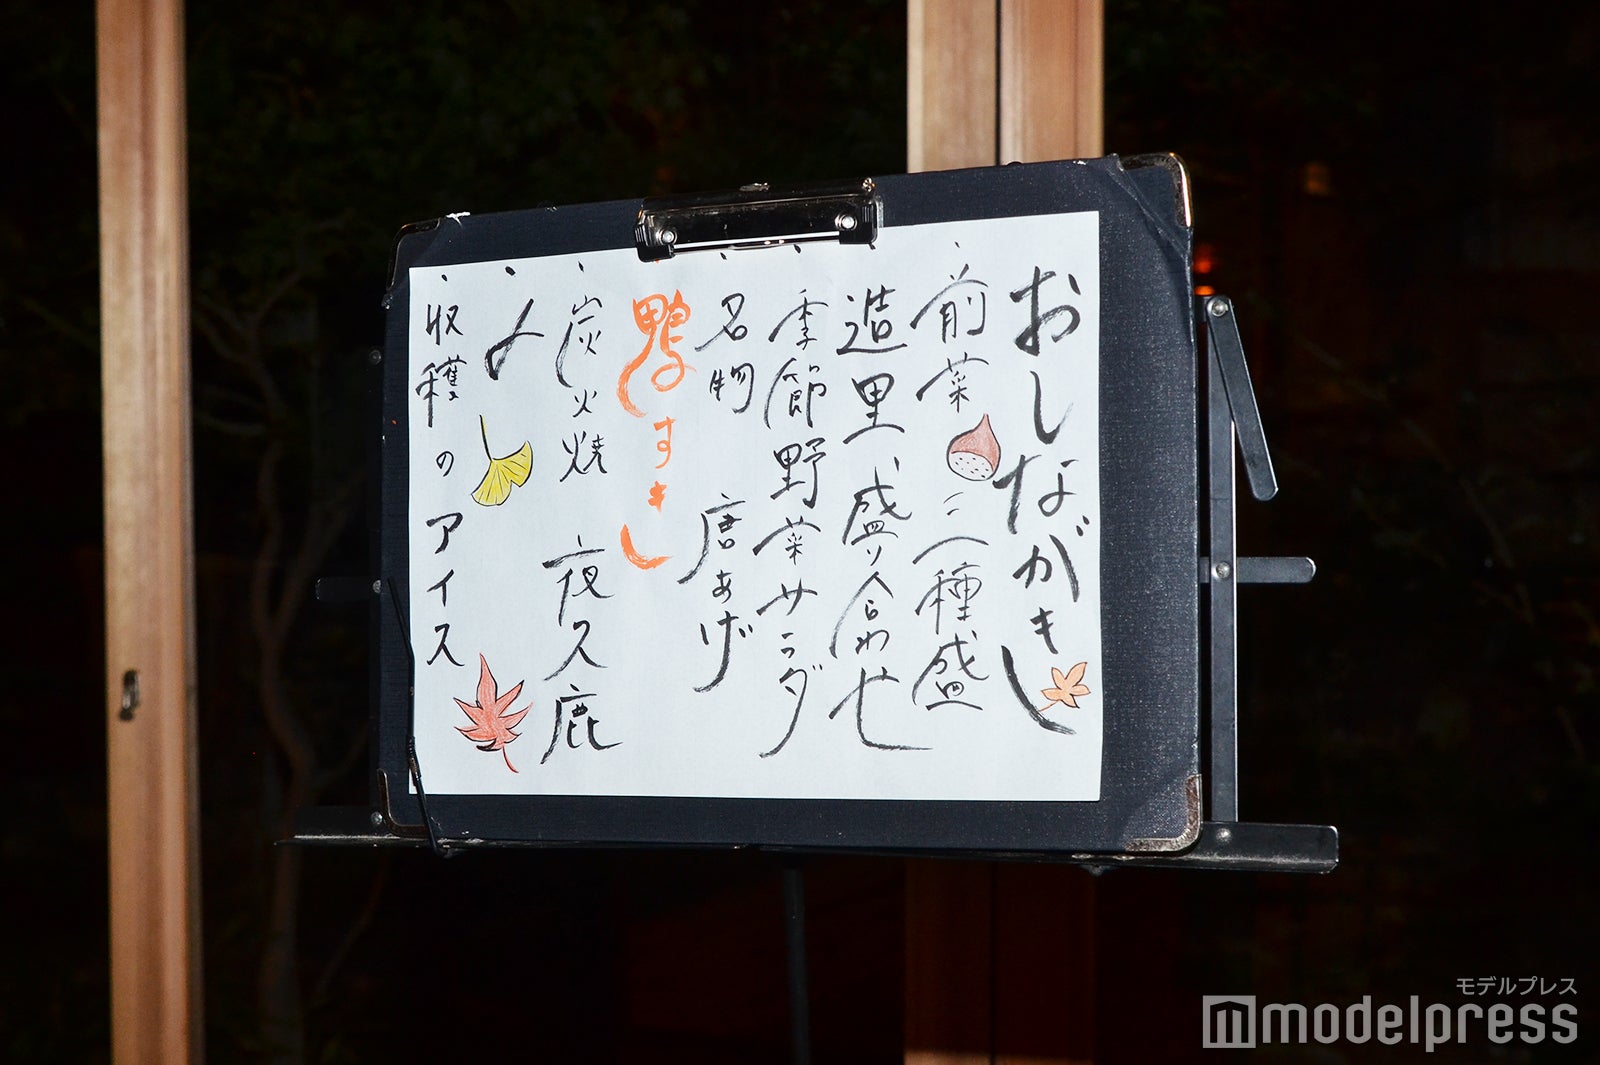 おしながき
・前菜 三種盛
造里 盛り合わせ
・季節野菜サラダ
・名物 唐あげ
・鴨すきし
・炭火焼 夜久鹿
・〆
・収穫のアイス
モデルプレス
modelpress